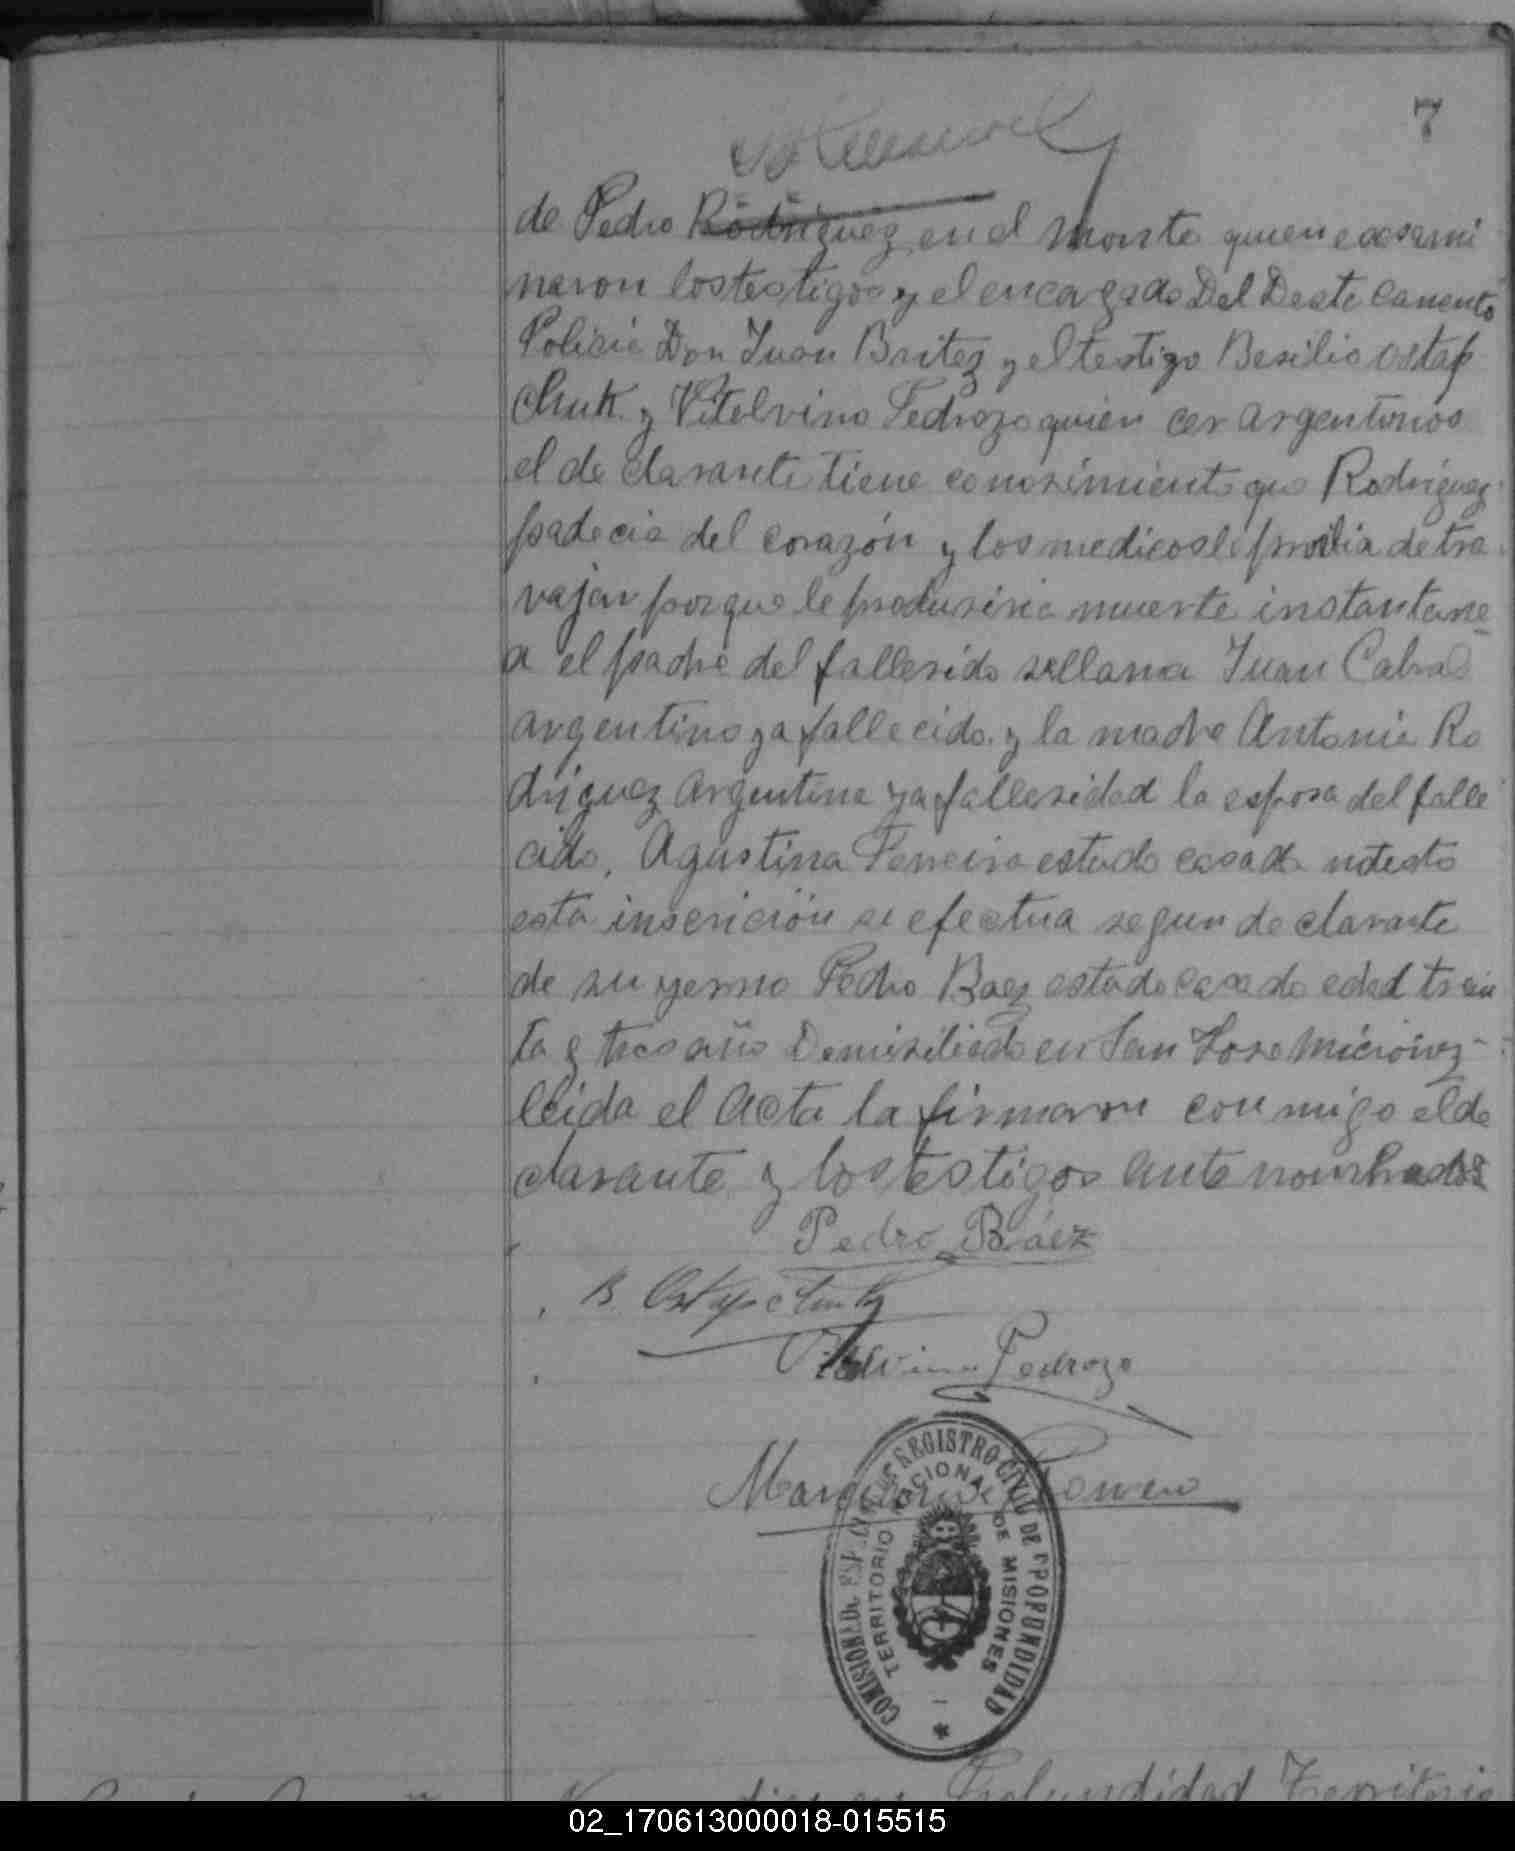 7
de Pedro Rodriguez en el monte quien ecosami
naron los testigos y el encargado Del Destacamento
Policia Don Juan Britez y el testigo Besilio Ostap
Chuk y Vitelvino Pedrozo quien cer argentinos
el declarante tiene conosimiento que Rodriguez
padecia del corazón y los medicos le provia de tra
vajar porque le produsiria muerte instantane
a el padre del fallesido se llama Juan Cabral
argentino ya fallecido y la madre Antonia Ro
driguez argentina ya fallesidad la esposa del falle
cido, Agustina Ferreira estado casada
esta inscrición se efectua segun declarante
de su yerno Pedro Baez estado casado edad trein
ta y tres año Domisiliado en San Jose Micionez
leida el Acta la firmaron conmigo el de
clarante y los testigos ante nombrados
Pedro Báez
B. Ostapchuk
Vitelvino Pedrozo
Romero
COMISIONADO REGISTRO CIVIL DE PROFUNDIDAD
TERRITORIO NACIONAL DE MISIONES
en Profundidad Territorio
02_170613000018-015515